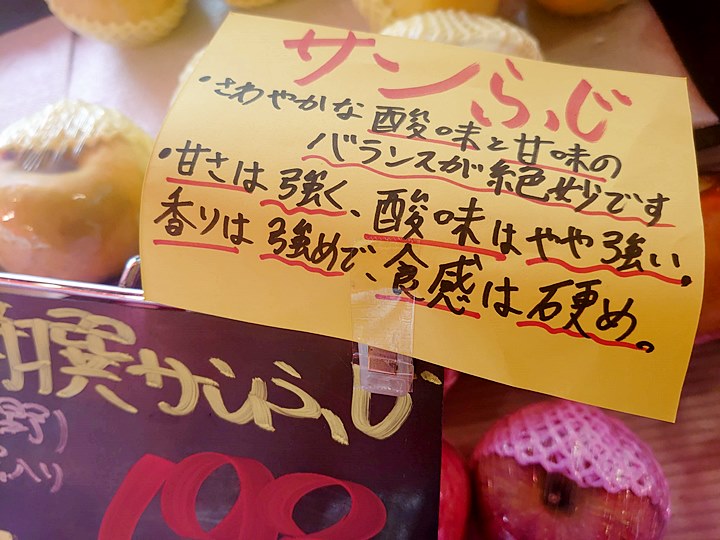 サンふじ
・さわやかな酸味と甘味の
バランスが絶妙です
・甘さは強く、酸味はやや強い。
香りは強めで、食感は硬め。
撰サンふじ
野)
入り
100